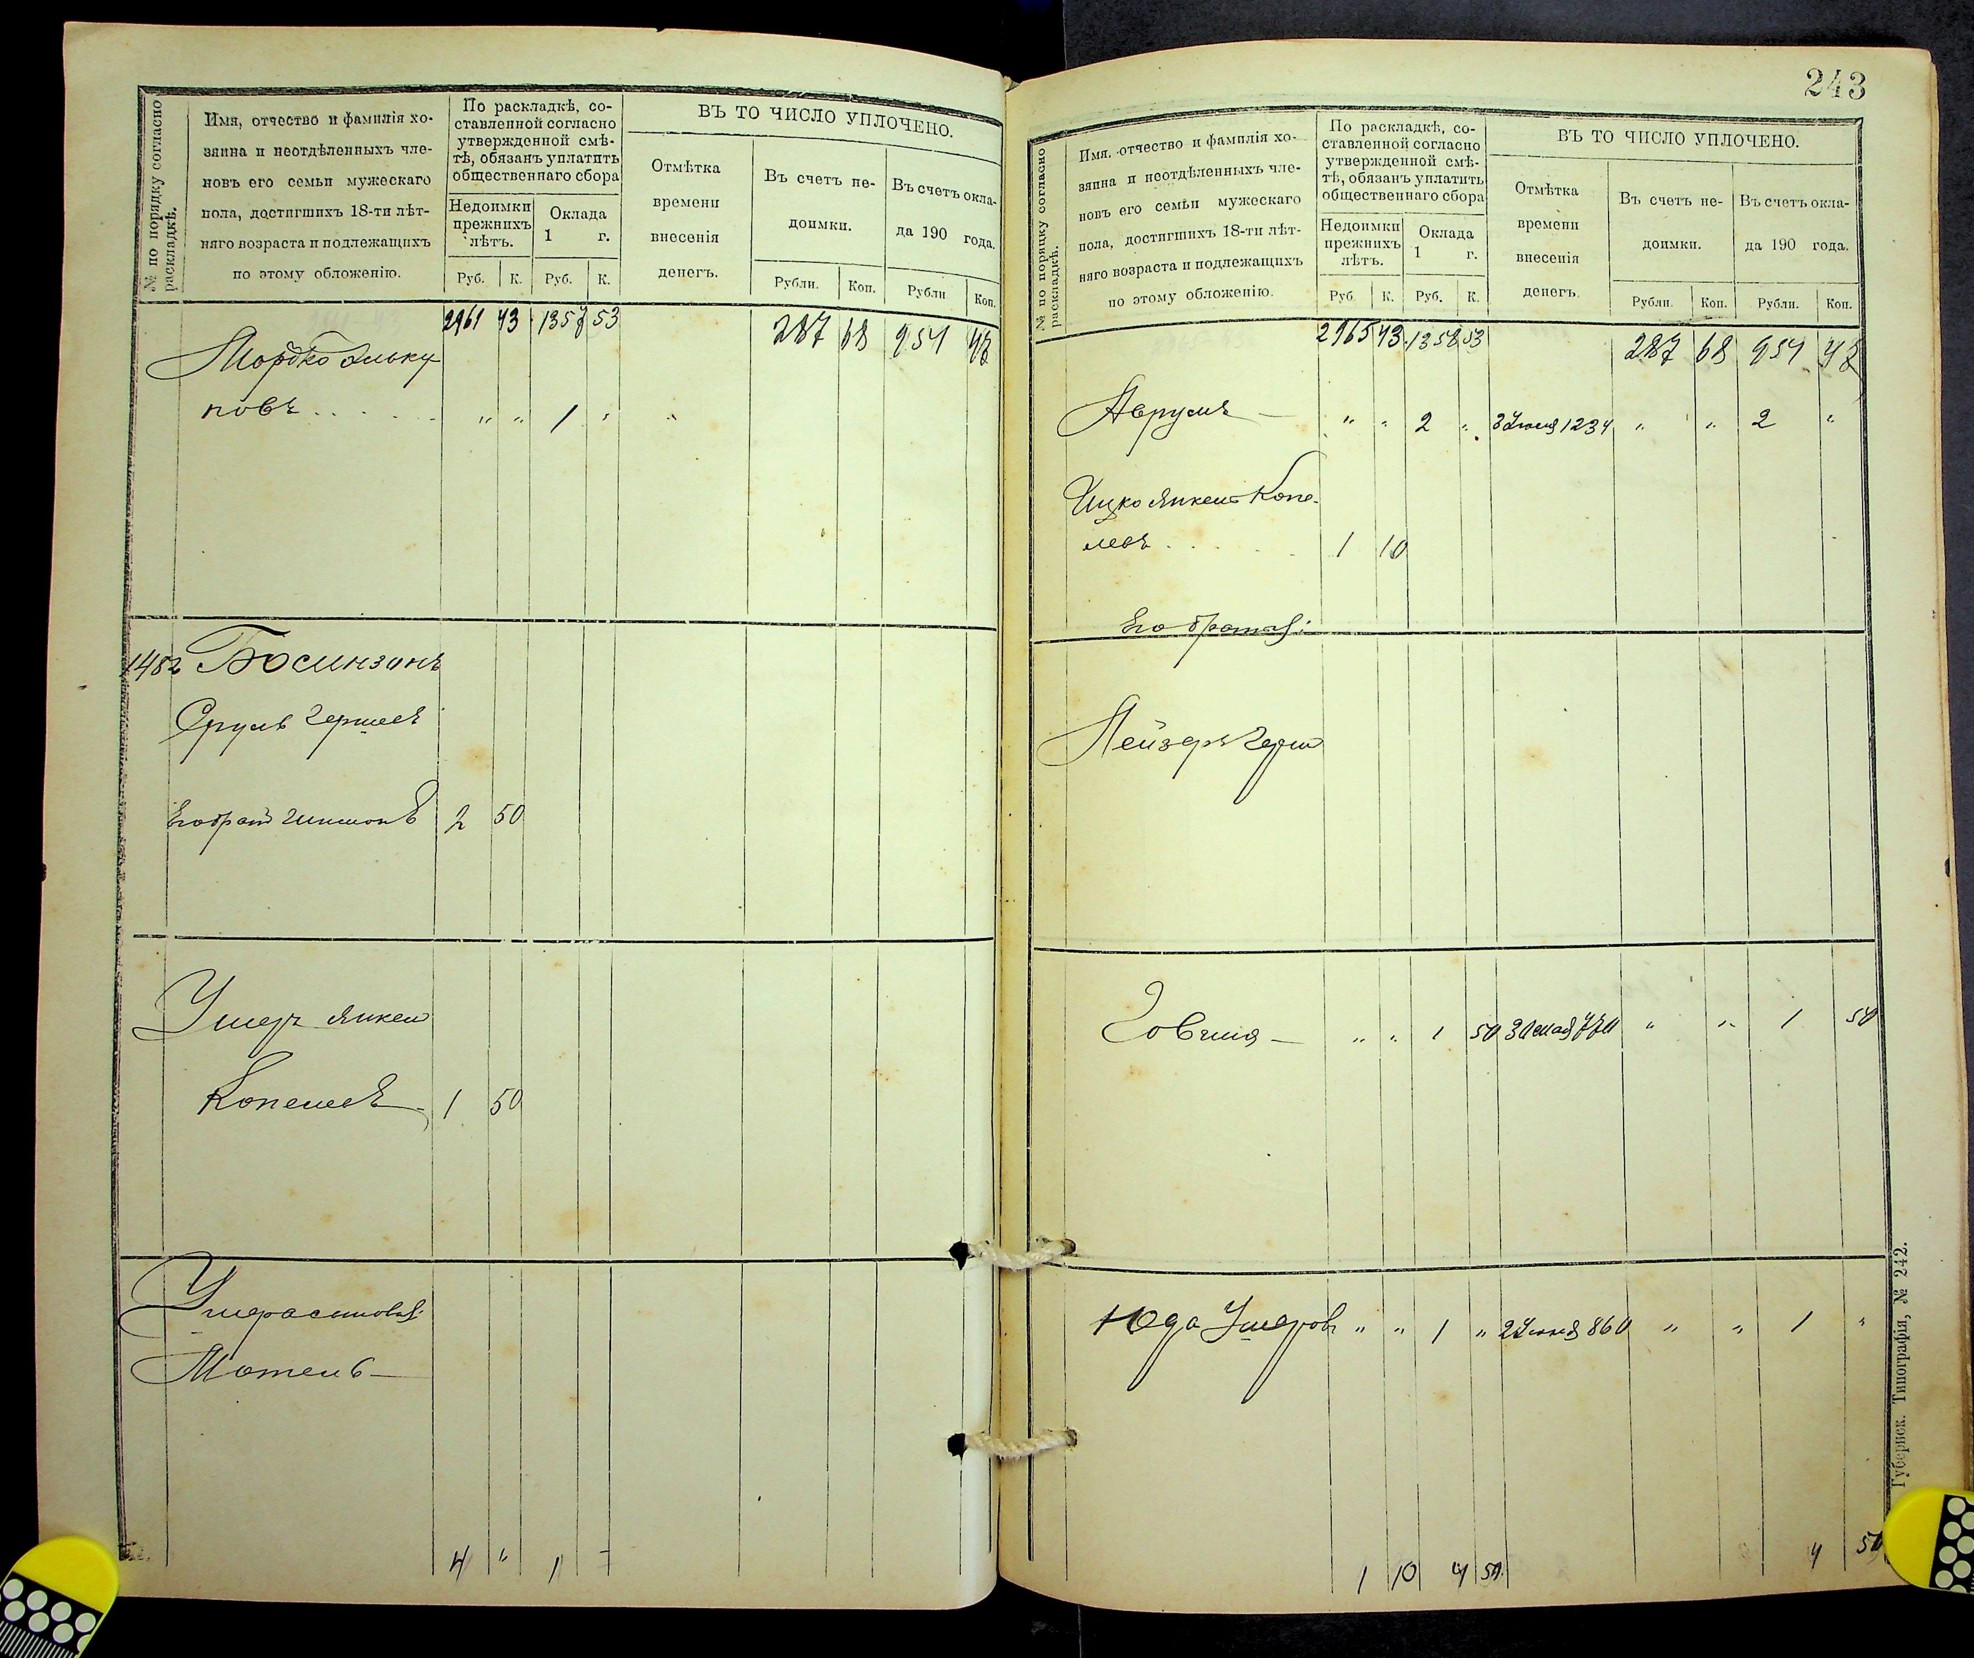 № по порядку согласно раскладкѣ.
Имя, отчество и фамилія хо-
зяина и неотдѣленныхъ чле-
новъ его семьи мужескаго
пола, достигшихъ 18-ти лѣт-
няго возраста и подлежащихъ
по этому обложенію.
По раскладкѣ, со-
ставленной согласно
утвержденной смѣ-
тѣ, обязанъ уплатить
общественнаго сбора
Недоимки
прежнихъ
лѣтъ.
Оклада
1 г.
Руб. К. Руб. К.
ВЪ ТО ЧИСЛО УПЛОЧЕНО.
Отмѣтка
времени
внесенія
денегъ.
Въ счетъ не-
доимки.
Въ счетъ окла-
да 190 года.
Рубли. Коп. Рубли Коп.
2961 43 1357 53 287 68 954 47
Мордко
повъ „ „ 1 „
1482
Сруль Гершев
Его братъ 2 50
Умеръ Янкель
Копелев 1 50
Мотель
4 „ 1 -
243
№ по порядку согласно раскладкѣ.
Имя, отчество и фамилія хо-
зяина и неотдѣленныхъ чле-
новъ его семьи мужескаго
пола, достигшихъ 18-ти лѣт-
няго возраста и подлежащихъ
по этому обложенію.
По раскладкѣ, со-
ставленной согласно
утвержденной смѣ-
тѣ, обязанъ уплатить
общественнаго сбора
Недоимки
прежнихъ
лѣтъ.
Оклада
1 г.
Руб. К. Руб. К.
ВЪ ТО ЧИСЛО УПЛОЧЕНО.
Отмѣтка
времени
внесенія
денегъ.
Въ счетъ не-
доимки.
Въ счетъ окла-
да 190 года.
Рубли. Коп. Рубли. Коп.
2965 43 1358 53 287 68 954 47
Аврумъ „ „ 2 „ 1234 „ „ 2 „
Ицко Янкель Копе-
левъ 1 10
Его братья:
Лейзеръ Герш
Говшия „ „ 1 50 30 мая 770 „ „ 1 50
Юда Умеров „ „ 1 „ 2 Іюня 860 „ „ 1 „
1 10 4 50 4 50
Губернск. Типографія, № 242.